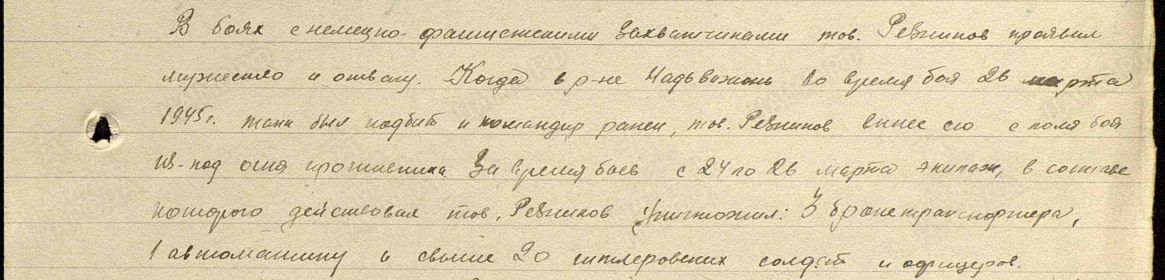 В боях с немецко-фашистскими захватчиками тов. Резников проявил
мужество и отвагу. Когда в р-не Надьвожонь во время боя 26 марта
1945г. танк был подбит и командир ранен, тов. Резников вынес его с поля боя
из-под огня противника. За время боев с 24 по 26 марта экипаж, в составе
которого действовал тов. Резников уничтожил: 3 бронетранспортера,
1 автомашину и свыше 20 гитлеровских солдат и офицеров.